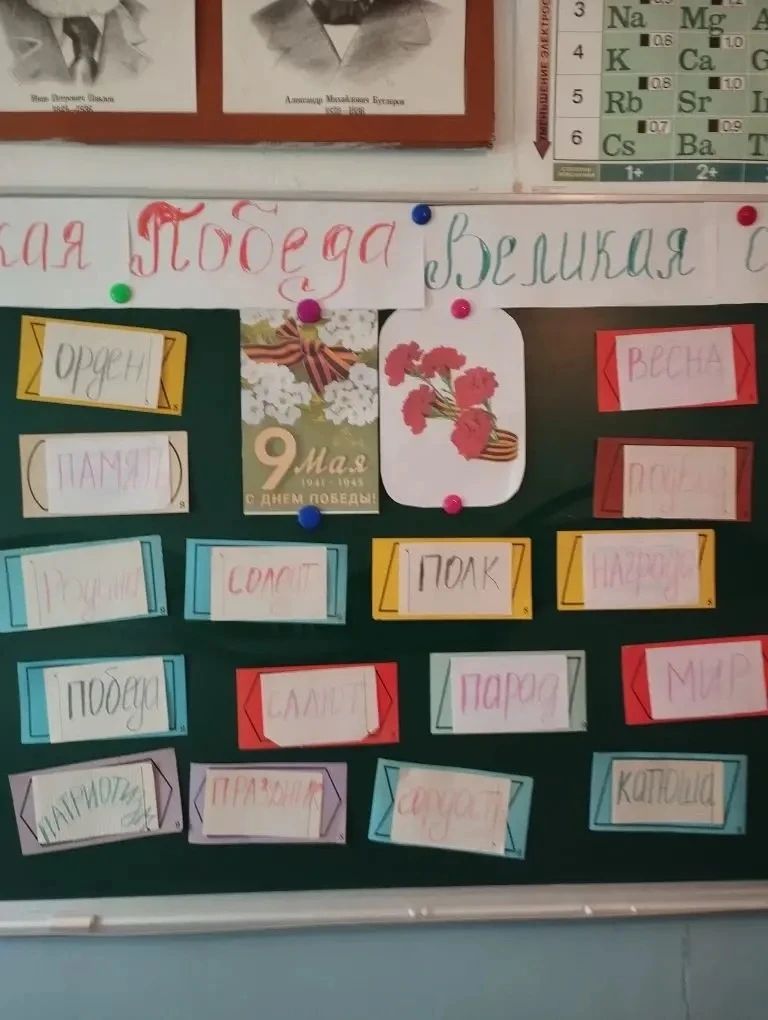 Иван Петрович Павлов
1849-1936
Александр Михайлович Бутлеров
1828-1886
УМЕНЬШЕНИЕ ЭЛЕКТРО
3 Na Mg
4 K 0,8 Ca 1,0
5 Rb 0,8 Sr 1,0
6 Cs 0,7 Ba 0,9
1+ 2+
кая Победа Великая с
ОРДЕН
9 Мая
1941 - 1945
С ДНЕМ ПОБЕДЫ!
ВЕСНА
ПАМЯТЬ
ПОДВИГ
РОДИНА
СОЛДАТ
ПОЛК
НАГРАДА
ПОБЕДА
САЛЮТ
ПАРАД
МИР
ПАТРИОТИЗМ
ПРАЗДНИК
КАТЮША